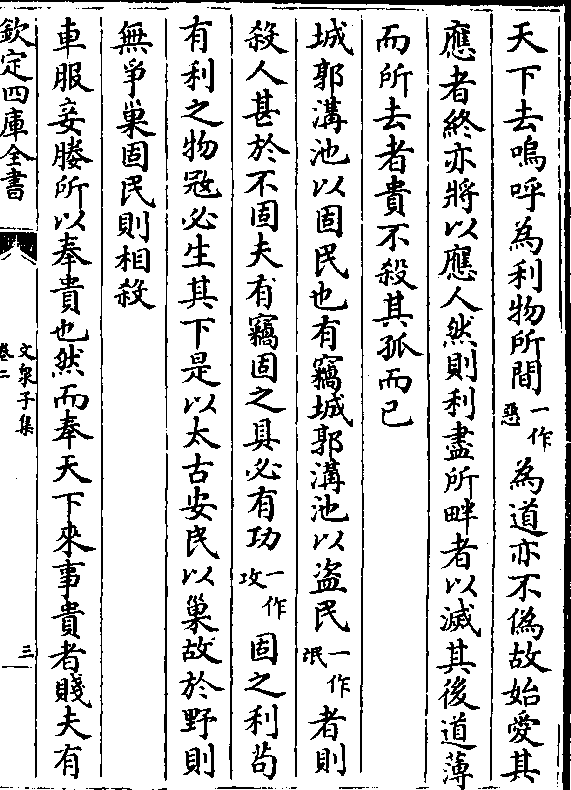 天下去嗚呼為利物所間一作惡為道亦不偽故始愛其
應者終亦將以應人然則利盡所畔者以滅其後道薄
而所去者貴不殺其孤而已
城郭溝池以固民也有竊城郭溝池以盜民一作氓者則
殺人甚於不固夫有竊固之具必有功一作攻固之利茍
有利之物冦必生其下是以太古安民以巢故於野則
無爭巢固民則相殺
車服妾媵所以奉貴也然而奉天下來事貴者賤夫有
欽定四庫全書
文泉子集
卷二
三